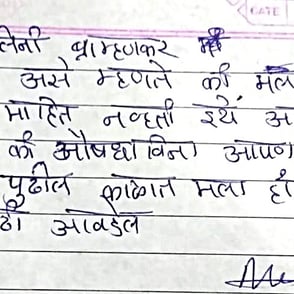 लेनी ब्राम्हणकर
असे म्हणते की मला
माहित नव्हती इथे अ
की औषधाविना आपण
पुढील काळात मला ही
ढी आवडेल